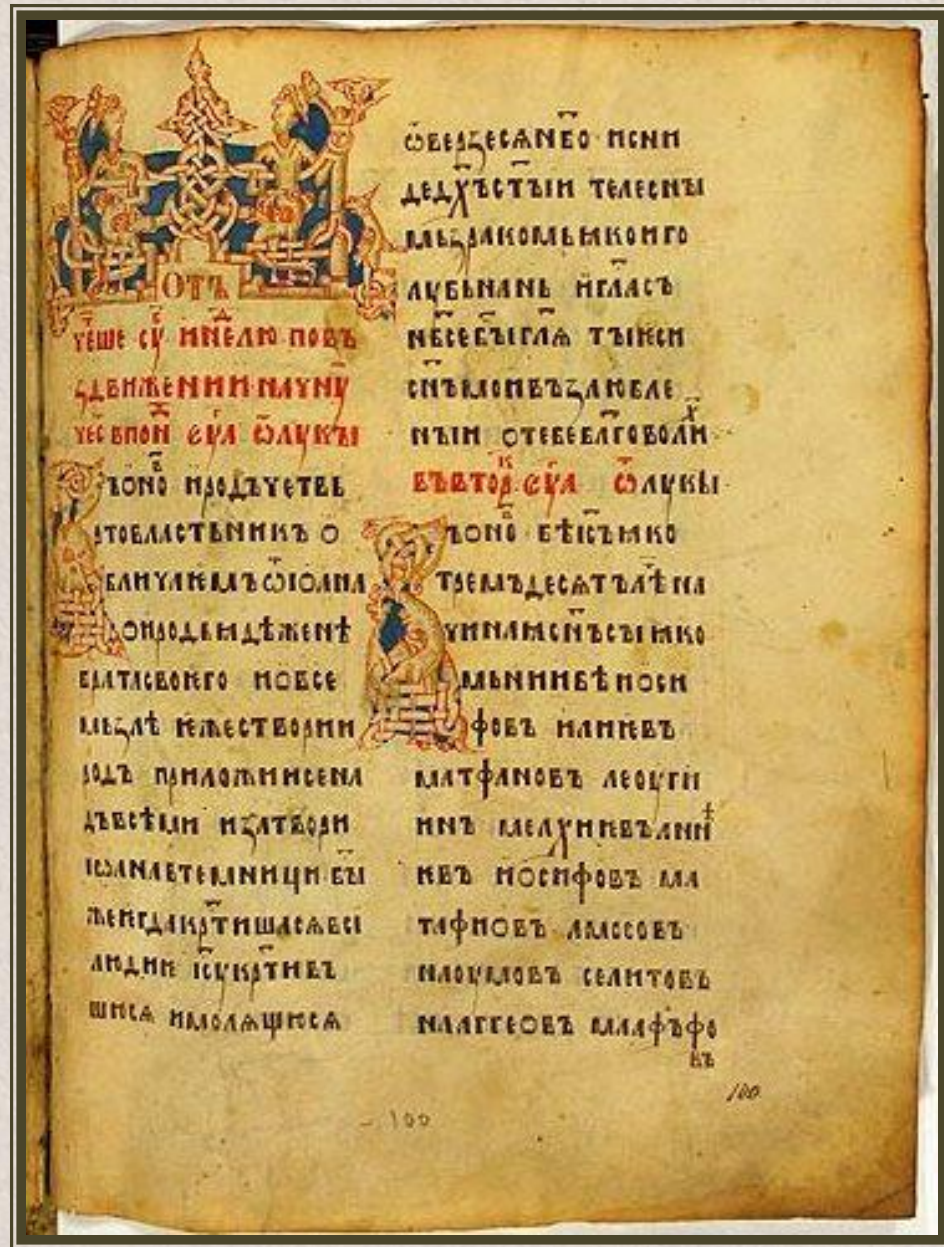 ОТЪ
ч̅еше с꙯у ині҄елю повъ
здвижении начну
чес впон еу҄а ѿлукы
ъоно иродъчетвь
ртовластьникъ о
бличаѥмъѿіоана
оиродьидѣженѣ
братасвоѥго новсе
мьзлѣ ѥжествории
родъ приложиисена
дъвсѣми изатвори
іѡанавтемници бы
жеѥгдакр̅тишасѧвси
людиѥ іс̅укр̅тивъ
шюсѧ имолѧщюсѧ
ѿверзесѧнб̅о исни
дедх̅ъст̅ыи телесны
мьзракомьꙗкоиго
лубьнань игласъ
нб̅себыгл̅ѧ тыѥси
сн̅ъмоивъзлюбле
ныи отебебл̅говоли
въвтор еу҄а ѿлукы
ъоно бѣіс̅ъꙗко
тремъдесѧтълѣна
чинаꙗсн̅ъсыꙗко
мьниибѣиоси
фовъ илиѥвъ
матфановъ леоугі
инъ мелхиѥвъанн
ѥвъ иосифовъ ма
тафиовъ амосовъ
наоумовъ селитовъ
наггеовъ маафъфо
въ
100
100